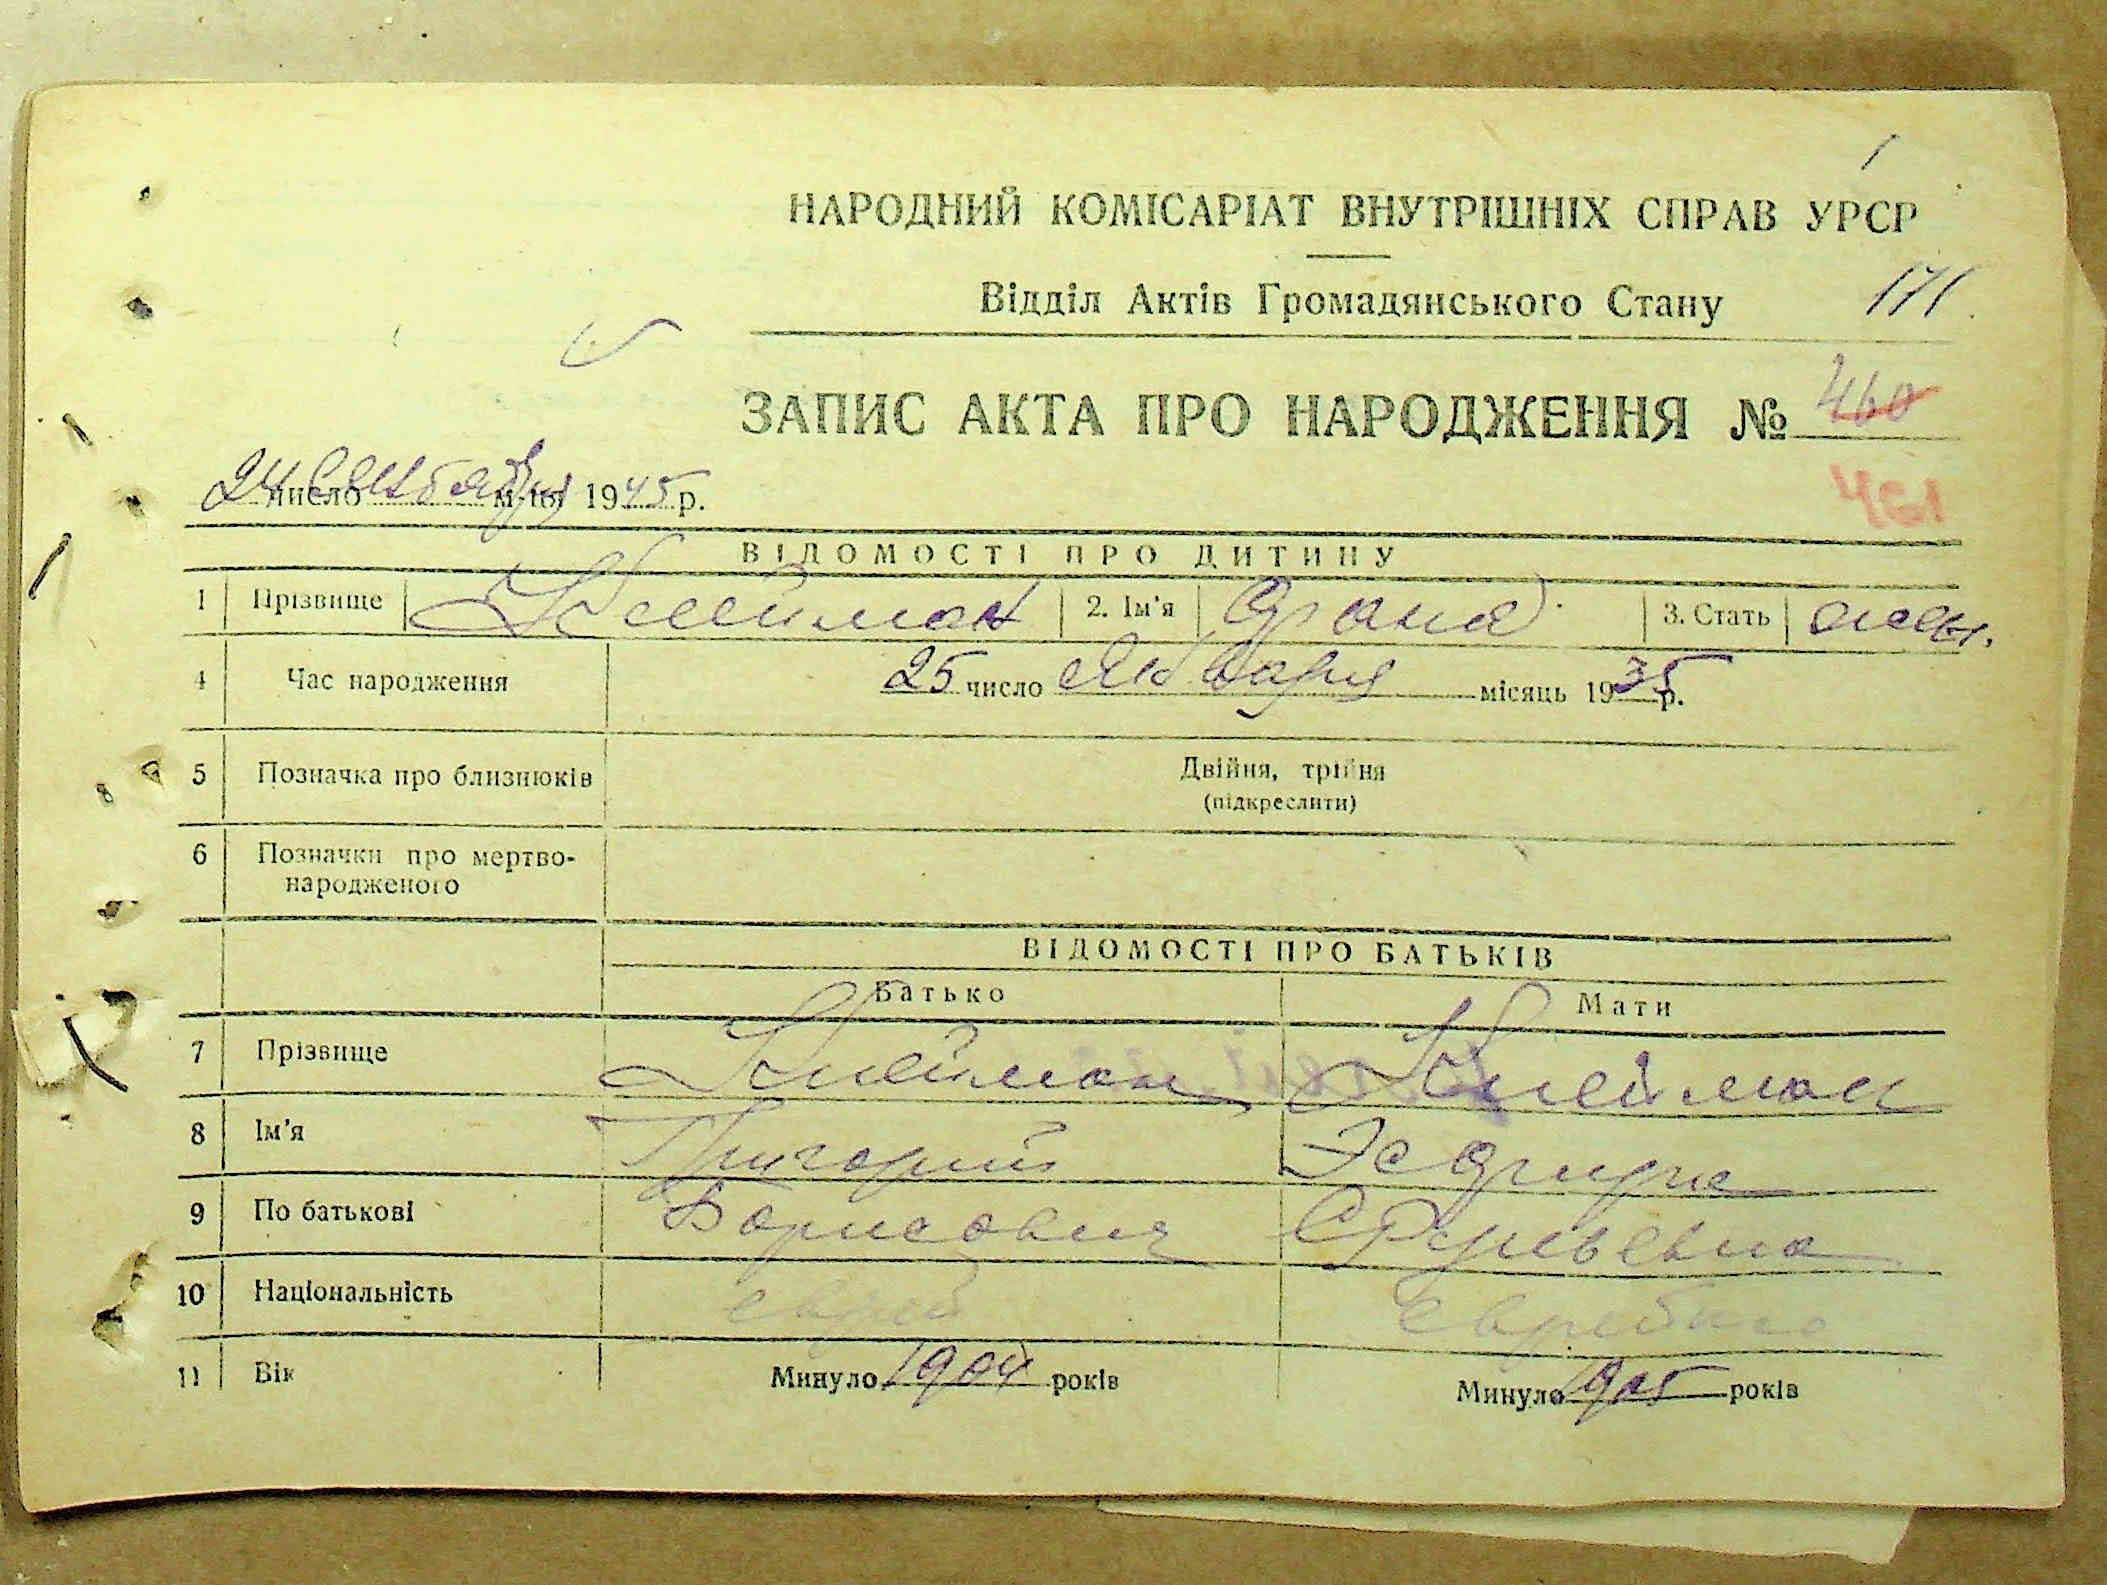 1
НАРОДНИЙ КОМІСАРІАТ ВНУТРІШНІХ СПРАВ УРСР
Відділ Актів Громадянського Стану 171
ЗАПИС АКТА ПРО НАРОДЖЕННЯ № 460
24 число Сентября м-ця 1945 р.
461
ВІДОМОСТІ ПРО ДИТИНУ
1 Прізвище Клейман 2. Ім'я Фаня 3. Стать жен.
4 Час народження 25 число Января місяць 1935 р.
5 Позначка про близнюків Двійня, трійня
(підкреслити)
6 Позначки про мертво-
народженого
ВІДОМОСТІ ПРО БАТЬКІВ
Батько Мати
7 Прізвище Клейман Клейман
8 Ім'я Григорий Эсфирь
9 По батькові Борисович
10 Національність еврей еврейка
11 Вік Минуло 1904 років Минуло 1905 років